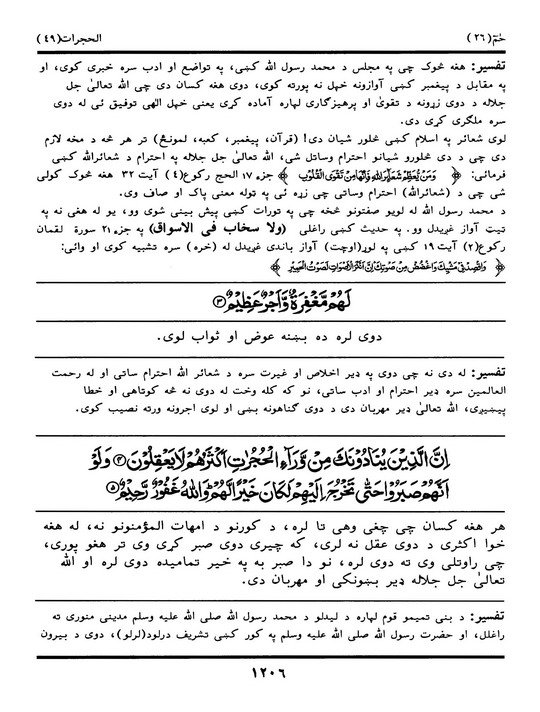 حٰمٓ (٢٦) الحجرات (٤٩)
تفسیر: هغه څوک چي په مجلس د محمد رسول الله کښي، په تواضع او ادب سره خبري کوي، او
په مقابل د پيغمبر کښي آوازونه خپل نه پورته کوي، دوی هغه کسان دي چي الله تعالیٰ جل
جلاله د دوی زړونه د تقویٰ او پرهيزګاری لپاره آماده کړي يعني خپل الهي توفيق ئې له دوی
سره ملګری کړی دی.
لوی شعائر په اسلام کښي څلور شيان دي! (قرآن، پيغمبر، کعبه، لمونځ) تر هر څه د مخه لازم
دي چي د دې څلورو شيانو احترام وساتل شي، الله تعالیٰ جل جلاله په احترام د شعائرالله کښي
فرمائي: ﴿ وَمَنْ يُعَظِّمْ شَعَائِرَ اللهِ فَاِنَّهَا مِنْ تَقْوَى الْقُلُوْبِ ﴾ جزء ١٧ الحج رکوع (٤) آيت ٣٢ هغه څوک کولی
شي چي د (شعائرالله) احترام وساتي چي زړه ئې په ټوله معنی پاک او صاف وي.
د محمد رسول الله له لويو صفتونو څخه چي په تورات کښي پيش بيني شوي وو، يو له هغې نه په
تيټ آواز غږيدل وو. په حديث کښي راغلي (ولا سخاب في الاسواق) په جزء ٢١ سورة لقمان
رکوع (٢) آيت ١٩ کښي په لوړ (اوچت) آواز باندي غږيدل له (خره) سره تشبيه کوي او وائي:
﴿ وَاقْصِدْ فِيْ مَشْيِكَ وَاغْضُضْ مِنْ صَوْتِكَ اِنَّ اَنْكَرَ الْاَصْوَاتِ لَصَوْتُ الْحَمِيْرِ ﴾
لَهُمْ مَّغْفِرَةٌ وَّاَجْرٌ عَظِيْمٌ ﴿٣﴾
دوی لره ده بښنه عوض او ثواب لوی.
تفسير: له دې نه چي دوی په ډير اخلاص او غيرت سره د شعائر الله احترام ساتي او له رحمت
العالمين سره ډير احترام او ادب ساتي، نو که کله وخت له دوی نه څه کوتاهي او خطا
پيښيږي، الله تعالیٰ ډير مهربان دی د دوی ګناهونه بښي او لوی اجرونه ورته نصيب کوي.
اِنَّ الَّذِيْنَ يُنَادُوْنَكَ مِنْ وَّرَآءِ الْحُجُرٰتِ اَكْثَرُهُمْ لَا يَعْقِلُوْنَ ﴿٤﴾ وَلَوْ
اَنَّهُمْ صَبَرُوْا حَتّٰى تَخْرُجَ اِلَيْهِمْ لَكَانَ خَيْرًا لَّهُمْ وَاللهُ غَفُوْرٌ رَّحِيْمٌ ﴿٥﴾
هر هغه کسان چي چغي وهي تا لره، د کورنو د امهات المؤمنونو نه، له هغه
خوا اکثری د دوی عقل نه لري، که چيري دوی صبر کړی وي تر هغو پوري،
چي راوتلی وي ته دوی لره، نو دا صبر به په خير تماميده دوی لره او الله
تعالیٰ جل جلاله ډير بښونکی او مهربان دی.
تفسير: د بني تميمو قوم لپاره د ليدلو د محمد رسول الله صلی الله عليه وسلم مدينې منورې ته
راغلل، او حضرت رسول الله صلی الله عليه وسلم په کور کښي تشريف درلود (لرلو)، دوی د بيرون
١٢٠٦